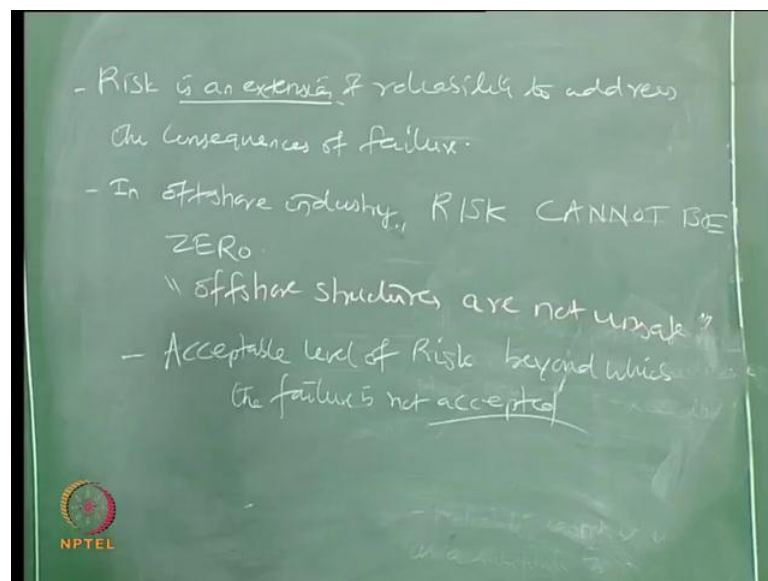 - Risk is an extension of reliability to address
the consequences of failure.
- In offshore industry, RISK CANNOT BE
ZERO.
"offshore structures are not unsafe"
- Acceptable level of Risk beyond which
the failure is not accepted
NPTEL